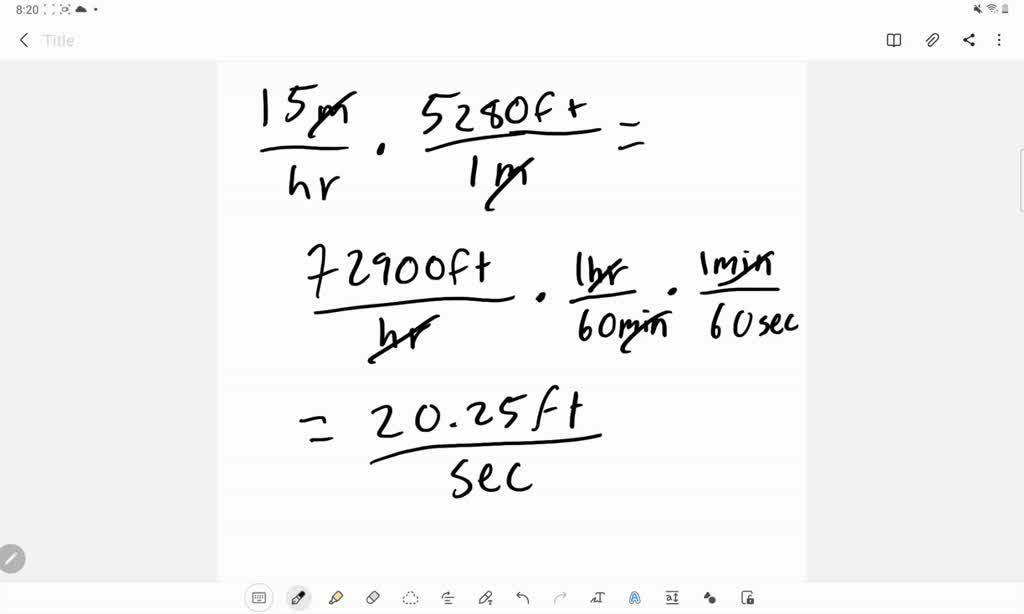 8:20
Title
15m/hr · 5280ft/1m =
72900ft/hr · 1hr/60min · 1min/60sec
= 20.25ft/sec